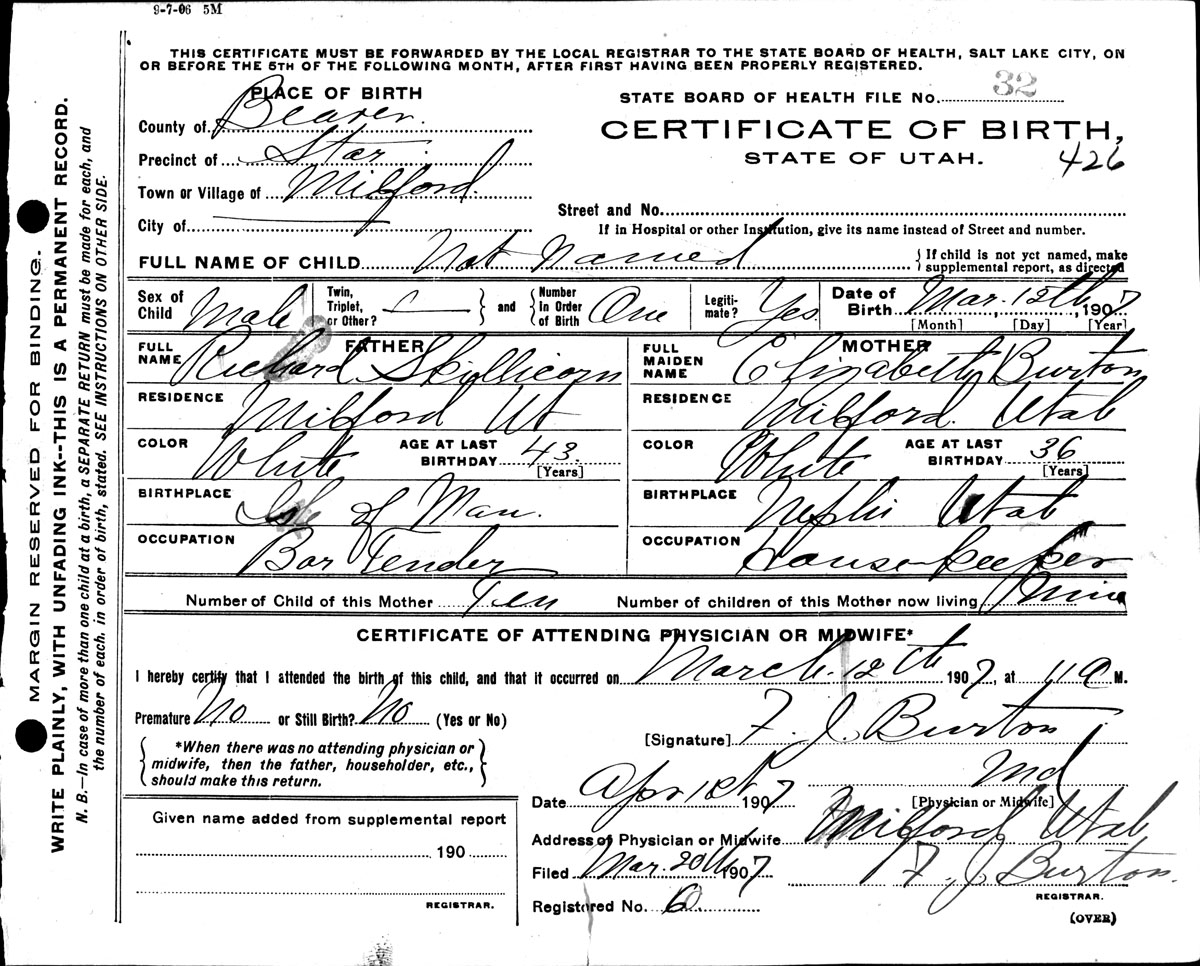 9-7-06 5M
THIS CERTIFICATE MUST BE FORWARDED BY THE LOCAL REGISTRAR TO THE STATE BOARD OF HEALTH, SALT LAKE CITY, ON
OR BEFORE THE 5TH OF THE FOLLOWING MONTH, AFTER FIRST HAVING BEEN PROPERLY REGISTERED.
PLACE OF BIRTH
County of Beaver.
Precinct of Star
Town or Village of Milford.
City of
STATE BOARD OF HEALTH FILE No. 32
CERTIFICATE OF BIRTH,
STATE OF UTAH.
426
Street and No.
If in Hospital or other Institution, give its name instead of Street and number.
FULL NAME OF CHILD Not Named { If child is not yet named, make
supplemental report, as directed
Sex of Child Male Twin, Triplet, or Other? } and { Number in Order of Birth One Legiti-mate? Yes Date of Birth Mar. 12th, 1907
[Month] [Day] [Year]
FATHER
FULL NAME Richard Skillicorn
RESIDENCE Milford Ut
COLOR White AGE AT LAST BIRTHDAY 43.
[Years]
BIRTHPLACE Isle of Man.
OCCUPATION Bar Tender
MOTHER
FULL MAIDEN NAME Elizabeth Burton
RESIDENCE Milford. Utah
COLOR White AGE AT LAST BIRTHDAY 36
[Years]
BIRTHPLACE Nephi Utah
OCCUPATION Housekeeper
Number of Child of this Mother Ten Number of children of this Mother now living Nine
CERTIFICATE OF ATTENDING PHYSICIAN OR MIDWIFE*
I hereby certify that I attended the birth of this child, and that it occurred on March 12th 1907, at 11 A M.
Premature No or Still Birth? No (Yes or No)
{ *When there was no attending physician or
midwife, then the father, householder, etc.,
should make this return. }
[Signature] F. J. Burton
Md
[Physician or Midwife]
Date Apr 1st 1907
Address of Physician or Midwife Milford Utah
Filed Mar. 20th 1907 F. J. Burton.
REGISTRAR.
Registered No. 6
(OVER)
Given name added from supplemental report
190
REGISTRAR.
MARGIN RESERVED FOR BINDING.
WRITE PLAINLY, WITH UNFADING INK--THIS IS A PERMANENT RECORD.
N. B.—In case of more than one child at a birth, a SEPARATE RETURN must be made for each, and
the number of each, in order of birth, stated. SEE INSTRUCTIONS ON OTHER SIDE.